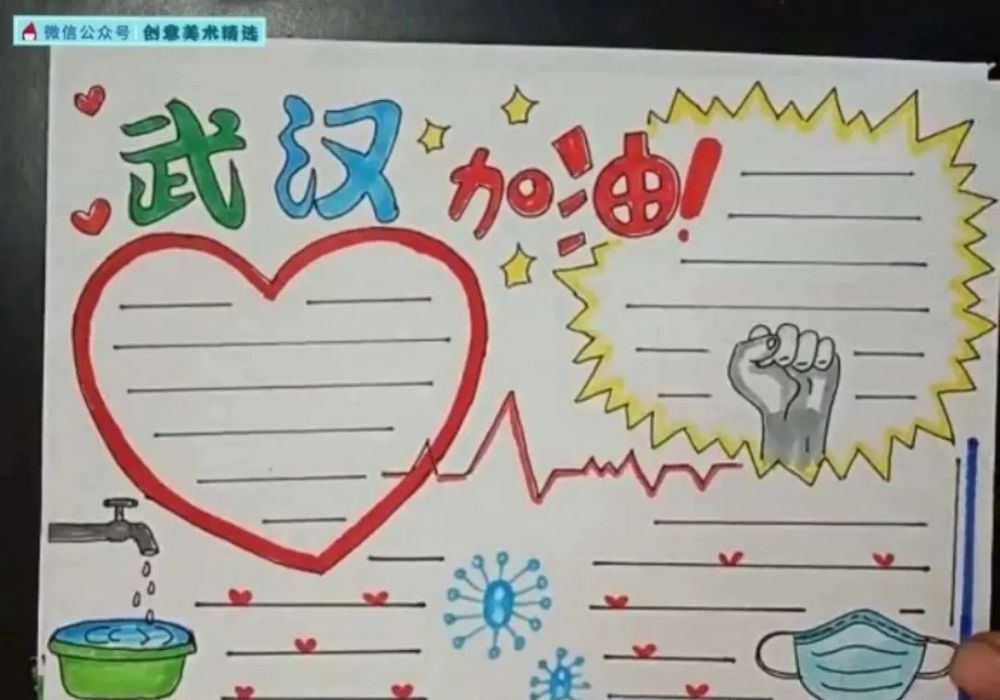 微信公众号 创意美术精选
武汉加油!